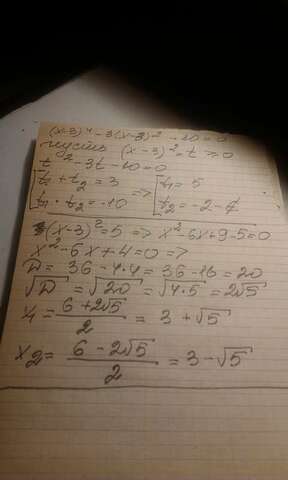 (x-3)⁴-3(x-3)²-10=0
пусть (x-3)²=t ≥0
t²-3t-10=0
[t₁+t₂=3 => [t₁=5
t₁·t₂=-10 t₂=-2-∉
(x-3)²=5 => x²-6x+9-5=0
x²-6x+4=0 =>
D=36-4·4=36-16=20
√D=√20=√4·5=2√5
x₁=6+2√5/2=3+√5
x₂=6-2√5/2=3-√5